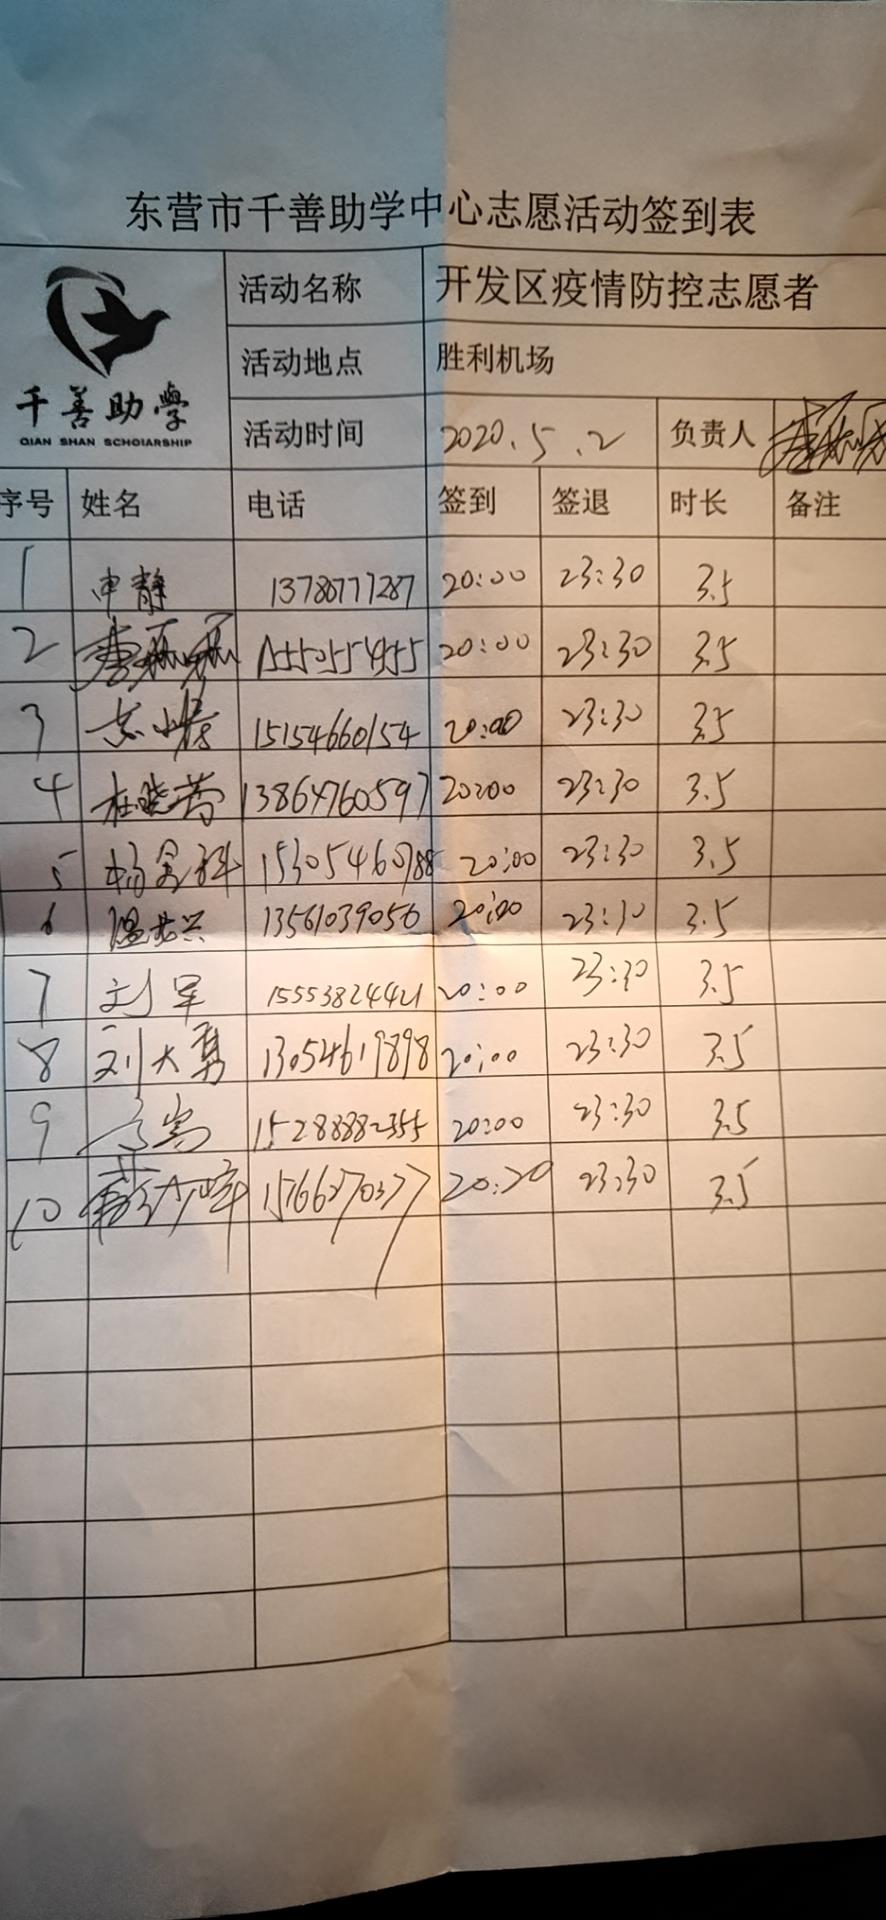 东营市千善助学中心志愿活动签到表
千善助學
QIAN SHAN SCHOIARSHIP
活动名称 开发区疫情防控志愿者
活动地点 胜利机场
活动时间 2020.5.2 负责人
序号 姓名 电话 签到 签退 时长 备注
1 申静 13780777287 20:00 23:30 3.5
2 15550554955 20:00 23:30 3.5
3 15154660154 20:00 23:30 3.5
4 杜晓蕾 13864760597 20:00 23:30 3.5
5 杨金科 15305460788 20:00 23:30 3.5
6 温志兴 13561039056 20:00 23:30 3.5
7 刘军 15553824421 20:00 23:30 3.5
8 刘大勇 13054619898 20:00 23:30 3.5
9 15288882355 20:00 23:30 3.5
10 15766270377 20:20 23:30 3.5